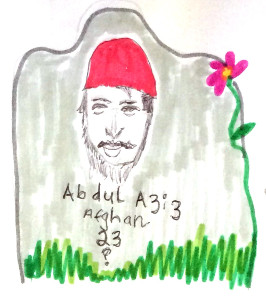 Abdul A3i3
Afghan
23
?